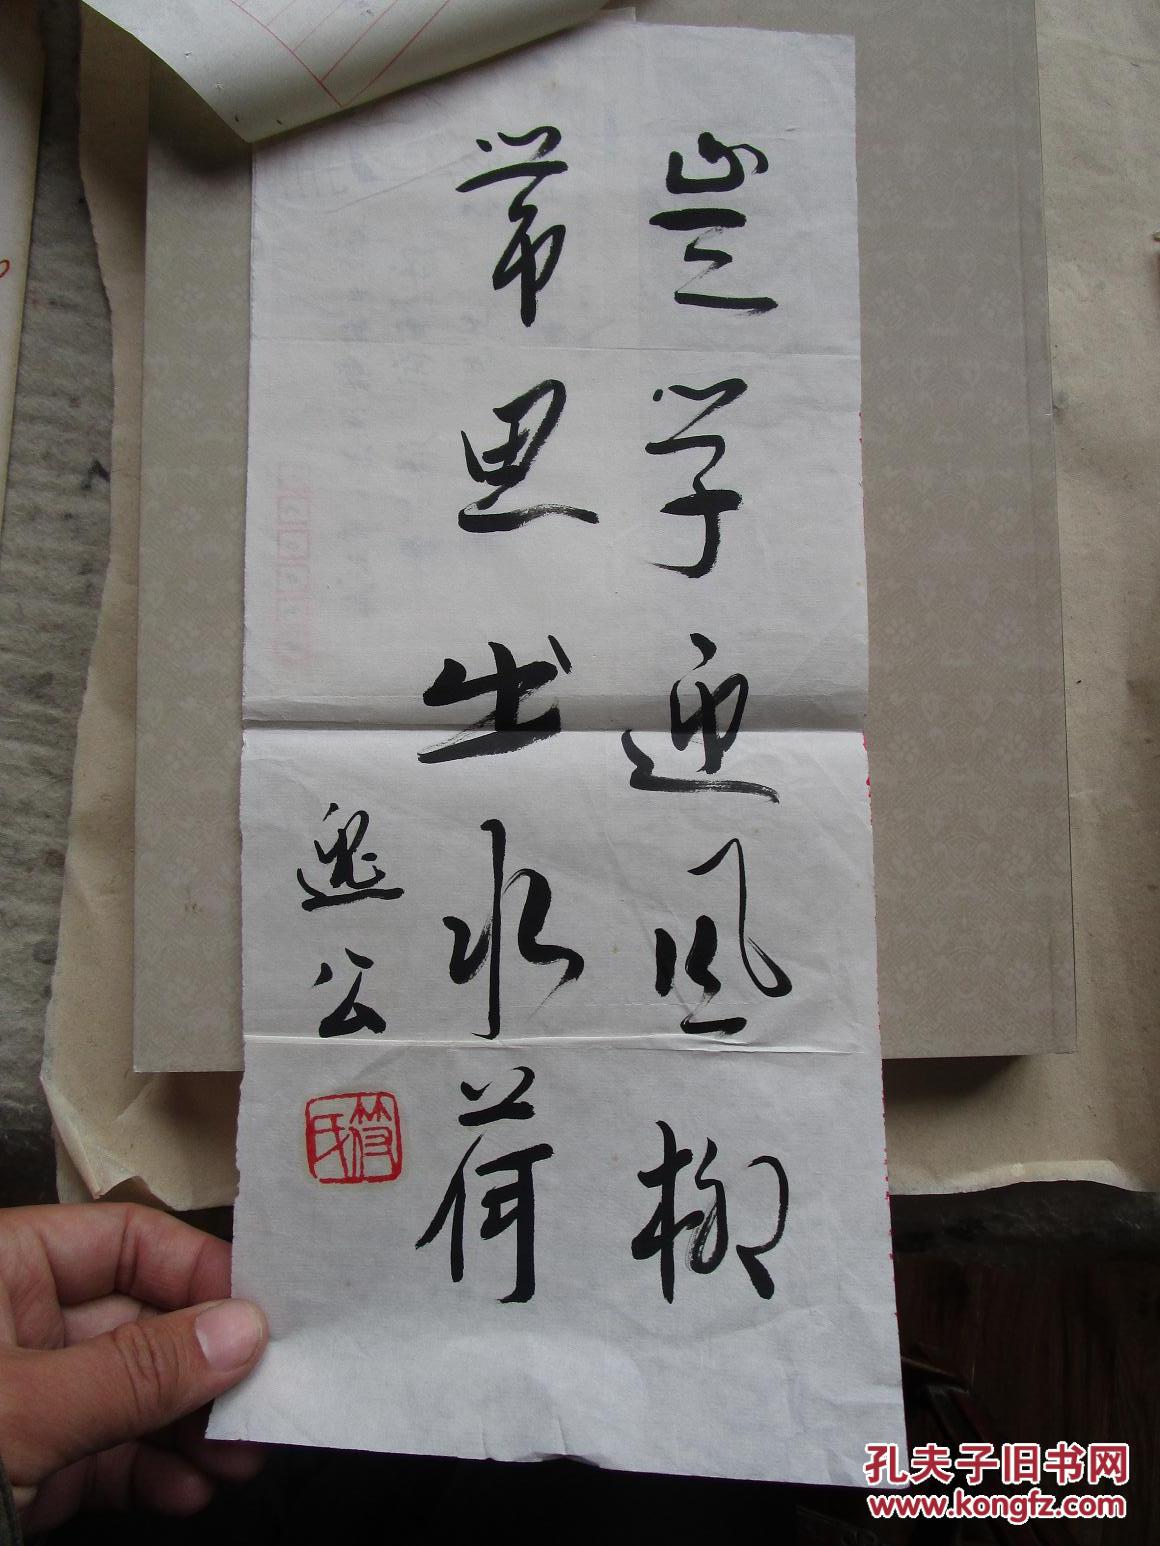 岂学迎风柳
常思出水荷
逸公
符氏
孔夫子旧书网
www.kongfz.com